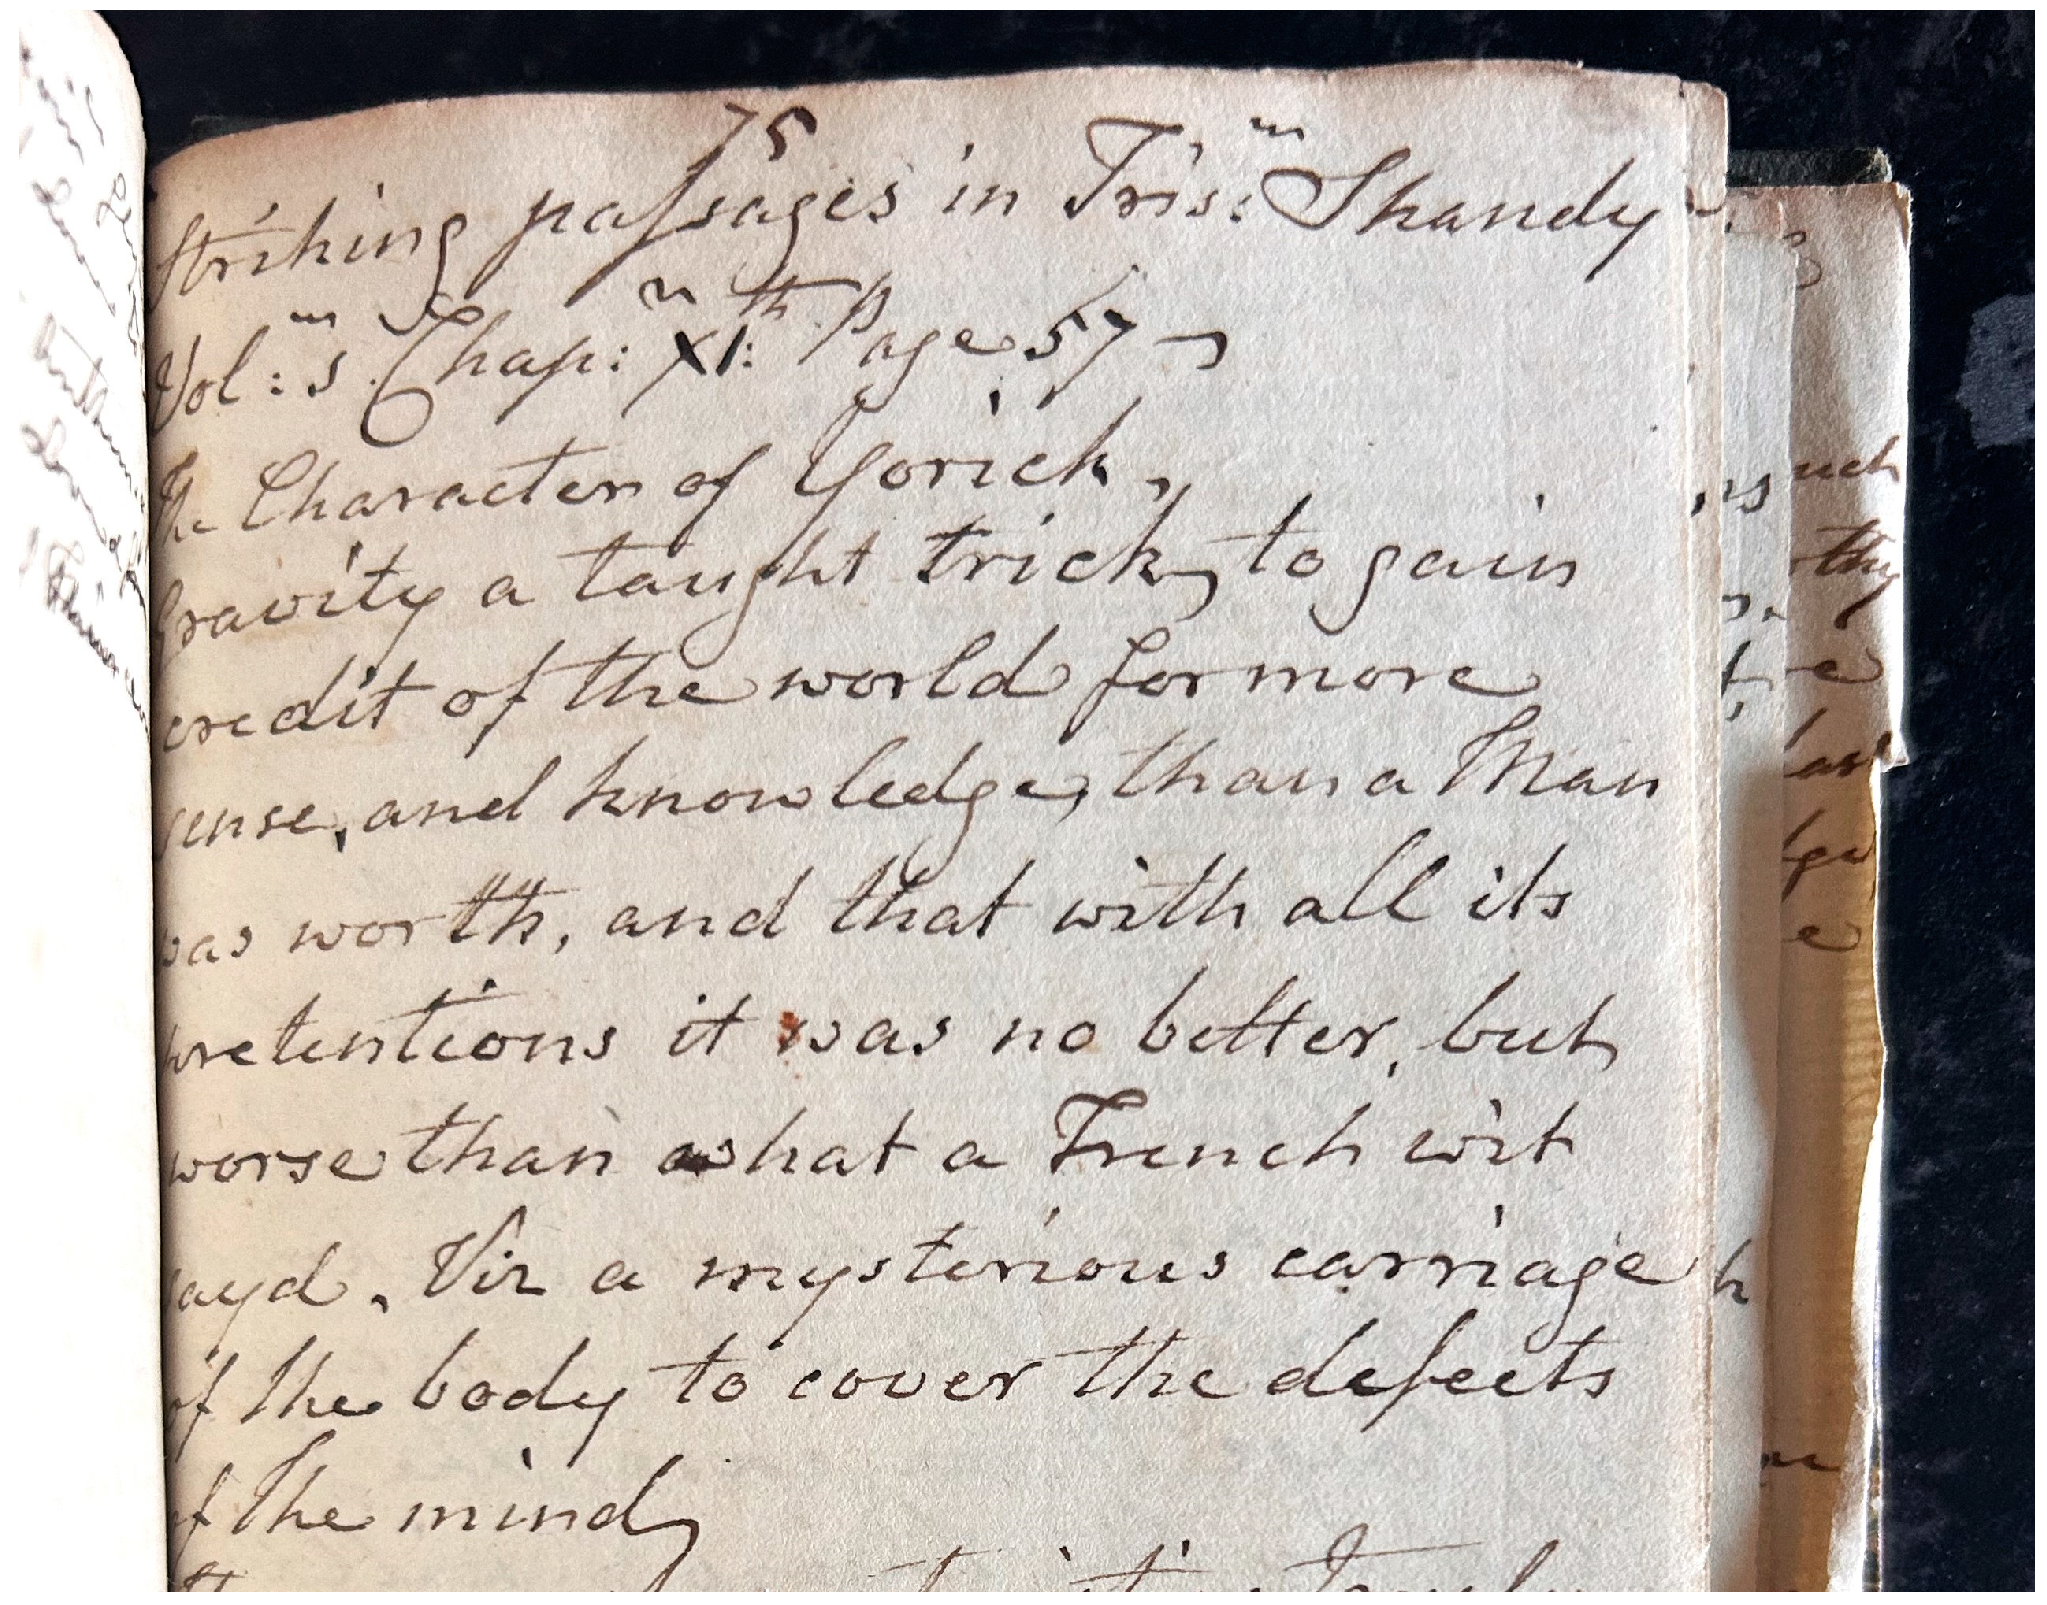 75
Striking passages in Tris:m Shandy
Vol: s. Chap: XI:th Page 57
The Character of Yorick,
Gravity a taught trick, to gain
credit of the world for more
sense, and knowledge, than a Man
was worth, and that with all its
pretentions it was no better, but
worse than what a French wit
sayd. Viz a mysterious carriage
of the body to cover the defects
of the mind,